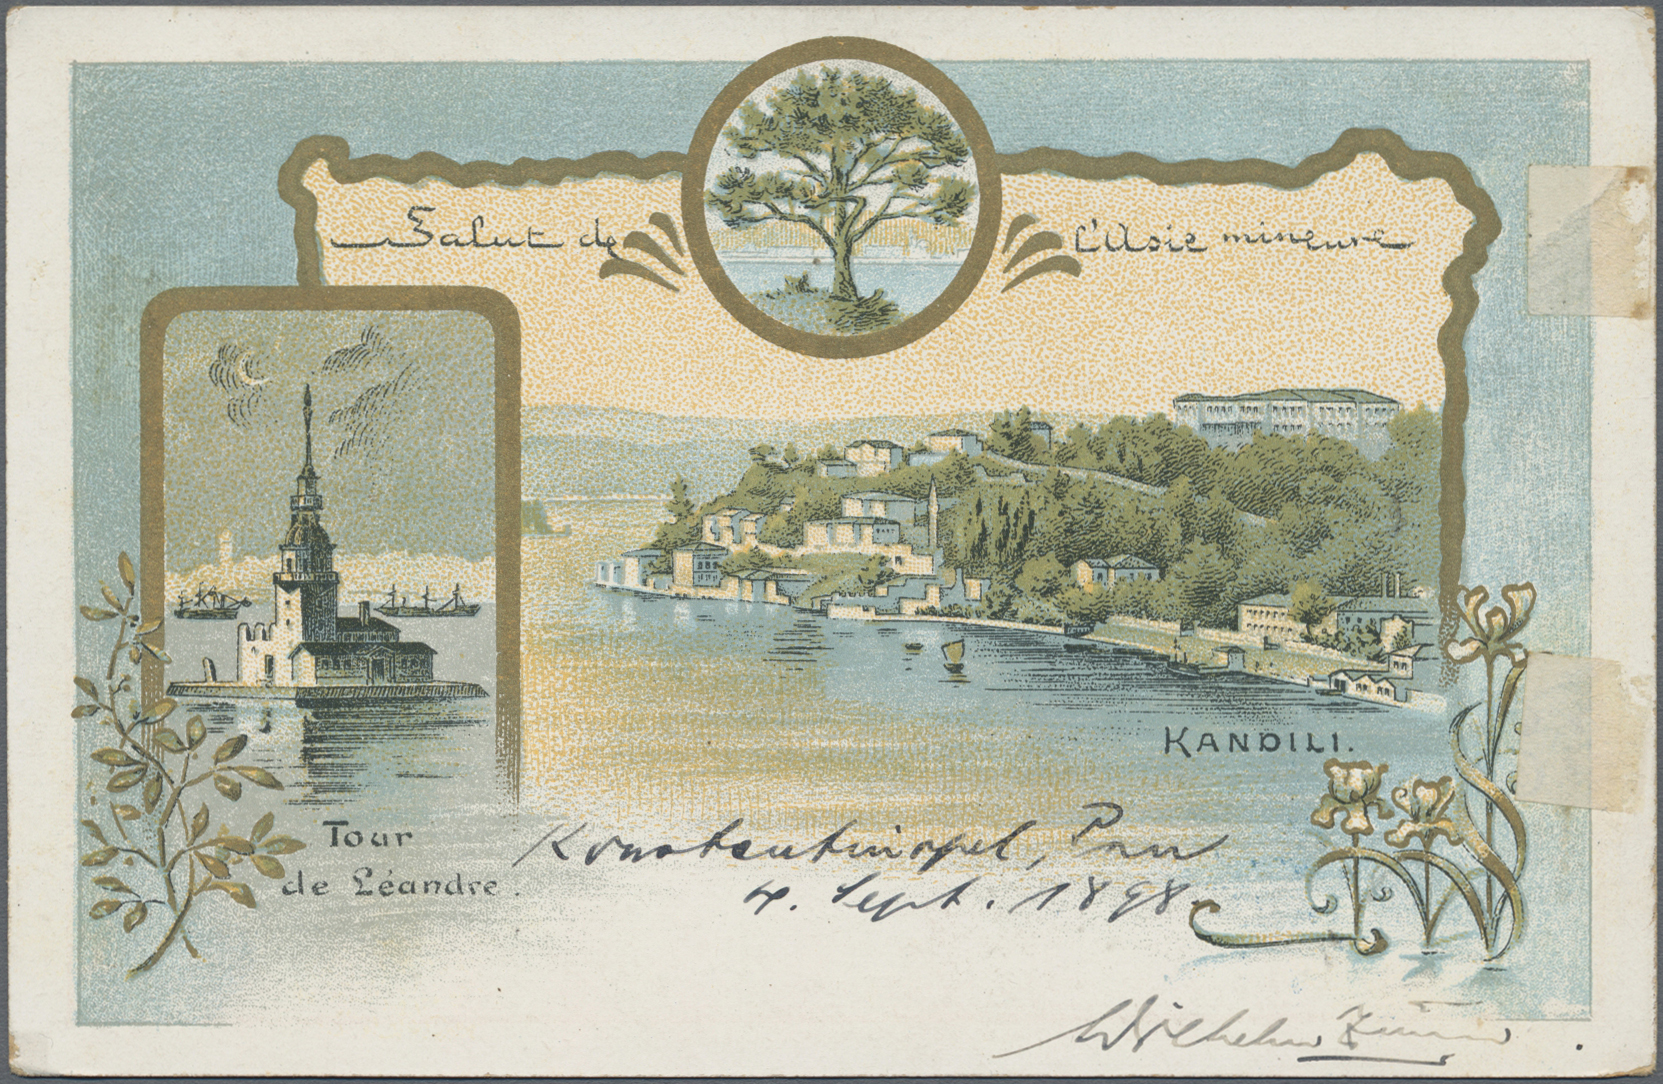 Salut de L'Asie mineure
KANDILI.
Tour
de Léandre.
Konstantinopel, 
4. Sept. 1898.
Wilhelm